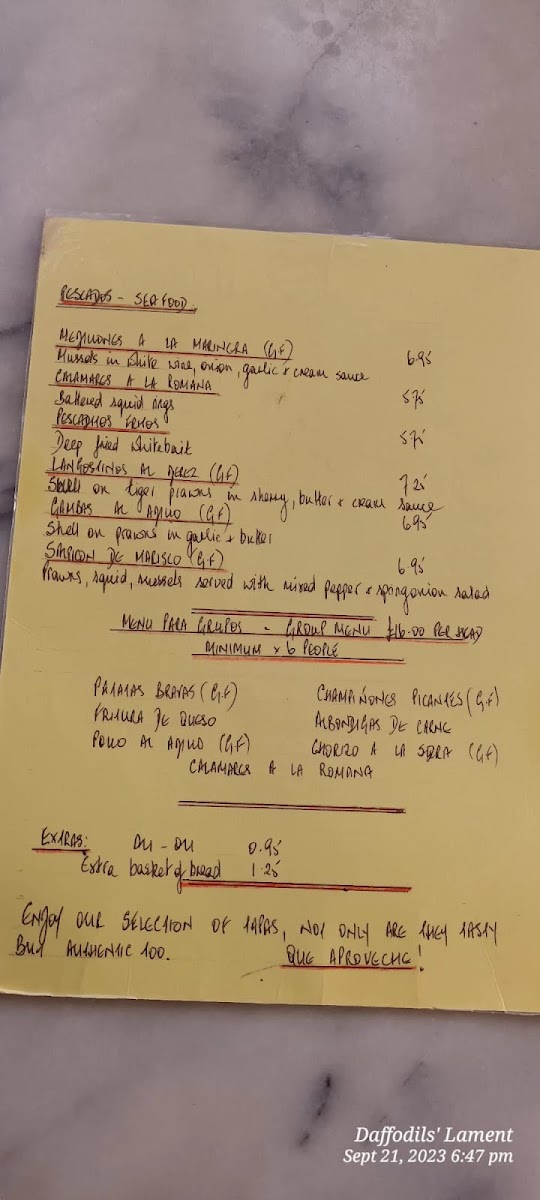 PESCADOS - SEAFOOD.
MEJILLONES A LA MARINERA (G.F)
6.95
Mussels in white wine, onion, garlic + cream sauce
CALAMARES A LA ROMANA
5.75
Battered squid rings
PESCADITOS FRITOS
5.75
Deep fried whitebait
LANGOSTINOS AL JEREZ (G.F)
7.25
Shell on tiger prawns in sherry, butter + cream sauce
GAMBAS AL AJILLO (G.F)
6.95
Shell on prawns in garlic + butter
SALPICON DE MARISCO (G.F)
6.95
Prawns, squid, mussels served with mixed pepper + springonion salad
MENU PARA GRUPOS - GROUP MENU £16.00 PER HEAD
MINIMUM x 6 PEOPLE
PATATAS BRAVAS (G.F) CHAMPIÑONES PICANTES (G.F)
FRITURA DE QUESO ALBONDIGAS DE CARNE
POLLO AL AJILLO (G.F) CHORIZO A LA SIDRA (G.F)
CALAMARES A LA ROMANA
EXTRAS: ALI-OLI 0.95
Extra basket of bread 1.25
ENJOY OUR SELECTION OF TAPAS, NOT ONLY ARE THEY TASTY
BUT AUTHENTIC TOO. QUE APROVECHE!
Daffodils' Lament
Sept 21, 2023 6:47 pm